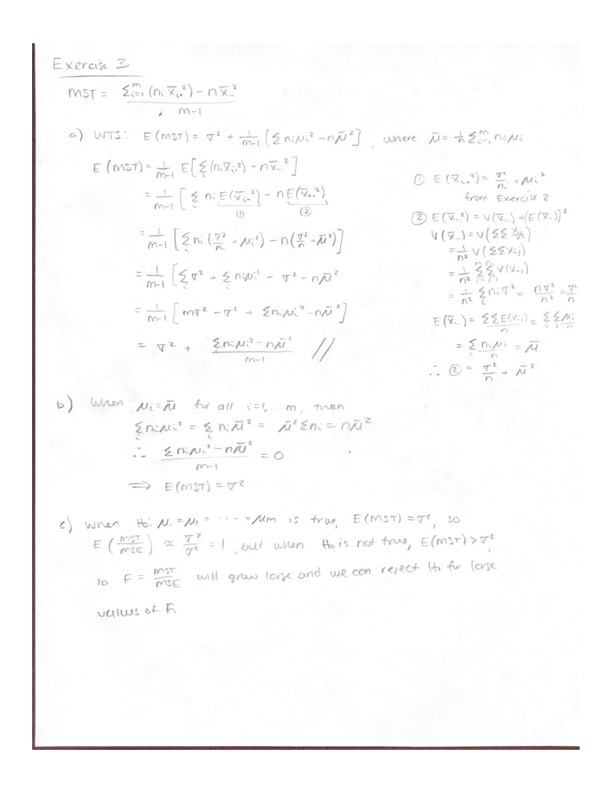 Exercise 3
MST = Σᵢ₌₁ᵐ (nᵢ x̄ᵢ.²) − n x̄..² / m−1
a) WTS: E(MST) = σ² + 1/(m−1) [Σ nᵢμᵢ² − nμ̄²], where μ̄ = 1/n Σᵢ₌₁ᵐ nᵢμᵢ
E(MST) = 1/(m−1) E[Σᵢ(nᵢx̄ᵢ.²) − n x̄..²]
= 1/(m−1) [Σᵢ nᵢ E(x̄ᵢ.²) − n E(x̄..²)]
① ②
= 1/(m−1) [Σᵢ nᵢ(σ²/nᵢ + μᵢ²) − n(σ²/n + μ̄²)]
= 1/(m−1) [Σᵢ σ² + Σᵢ nᵢμᵢ² − σ² − nμ̄²
= 1/(m−1) [mσ² − σ² + Σᵢ nᵢμᵢ² − nμ̄²]
= σ² + Σᵢ nᵢμᵢ² − nμ̄² / m−1 //
① E(x̄ᵢ.²) = σ²/nᵢ + μᵢ²
from Exercise 2
② E(x̄..²) = V(x̄..) + (E(x̄..))²
V(x̄..) = V(ΣΣ xᵢⱼ/n)
= 1/n² V(ΣΣ xᵢⱼ)
= 1/n² ΣΣ V(xᵢⱼ)
= 1/n² Σᵢ nᵢσ² = nσ²/n² = σ²/n
E(x̄..) = ΣΣE(xᵢⱼ)/n = ΣᵢΣⱼ μᵢ/n
= Σᵢ nᵢμᵢ/n = μ̄
∴ ② = σ²/n + μ̄²
b) When μᵢ = μ̄ for all i=1,...m, then
Σᵢ nᵢμᵢ² = Σᵢ nᵢμ̄² = μ̄² Σnᵢ = nμ̄²
∴ Σ nᵢμᵢ² − nμ̄² / m−1 = 0
⟹ E(MST) = σ²
c) When H₀: μ₁ = μ₂ = ····· = μm is true, E(MST) = σ², so
E(MST/MSE) ≈ σ²/σ² = 1, but when H₀ is not true, E(MST) > σ²,
so F = MST/MSE will grow large and we can reject H₀ for large
values of F.